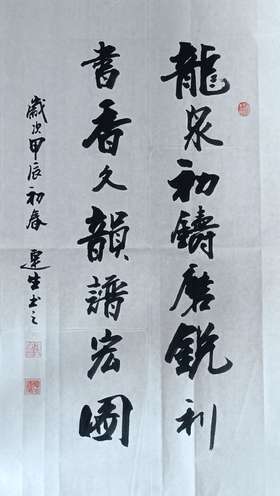 龍泉初鑄磨銳利
書香久韻譜宏圖
歲次甲辰初春 運生書之